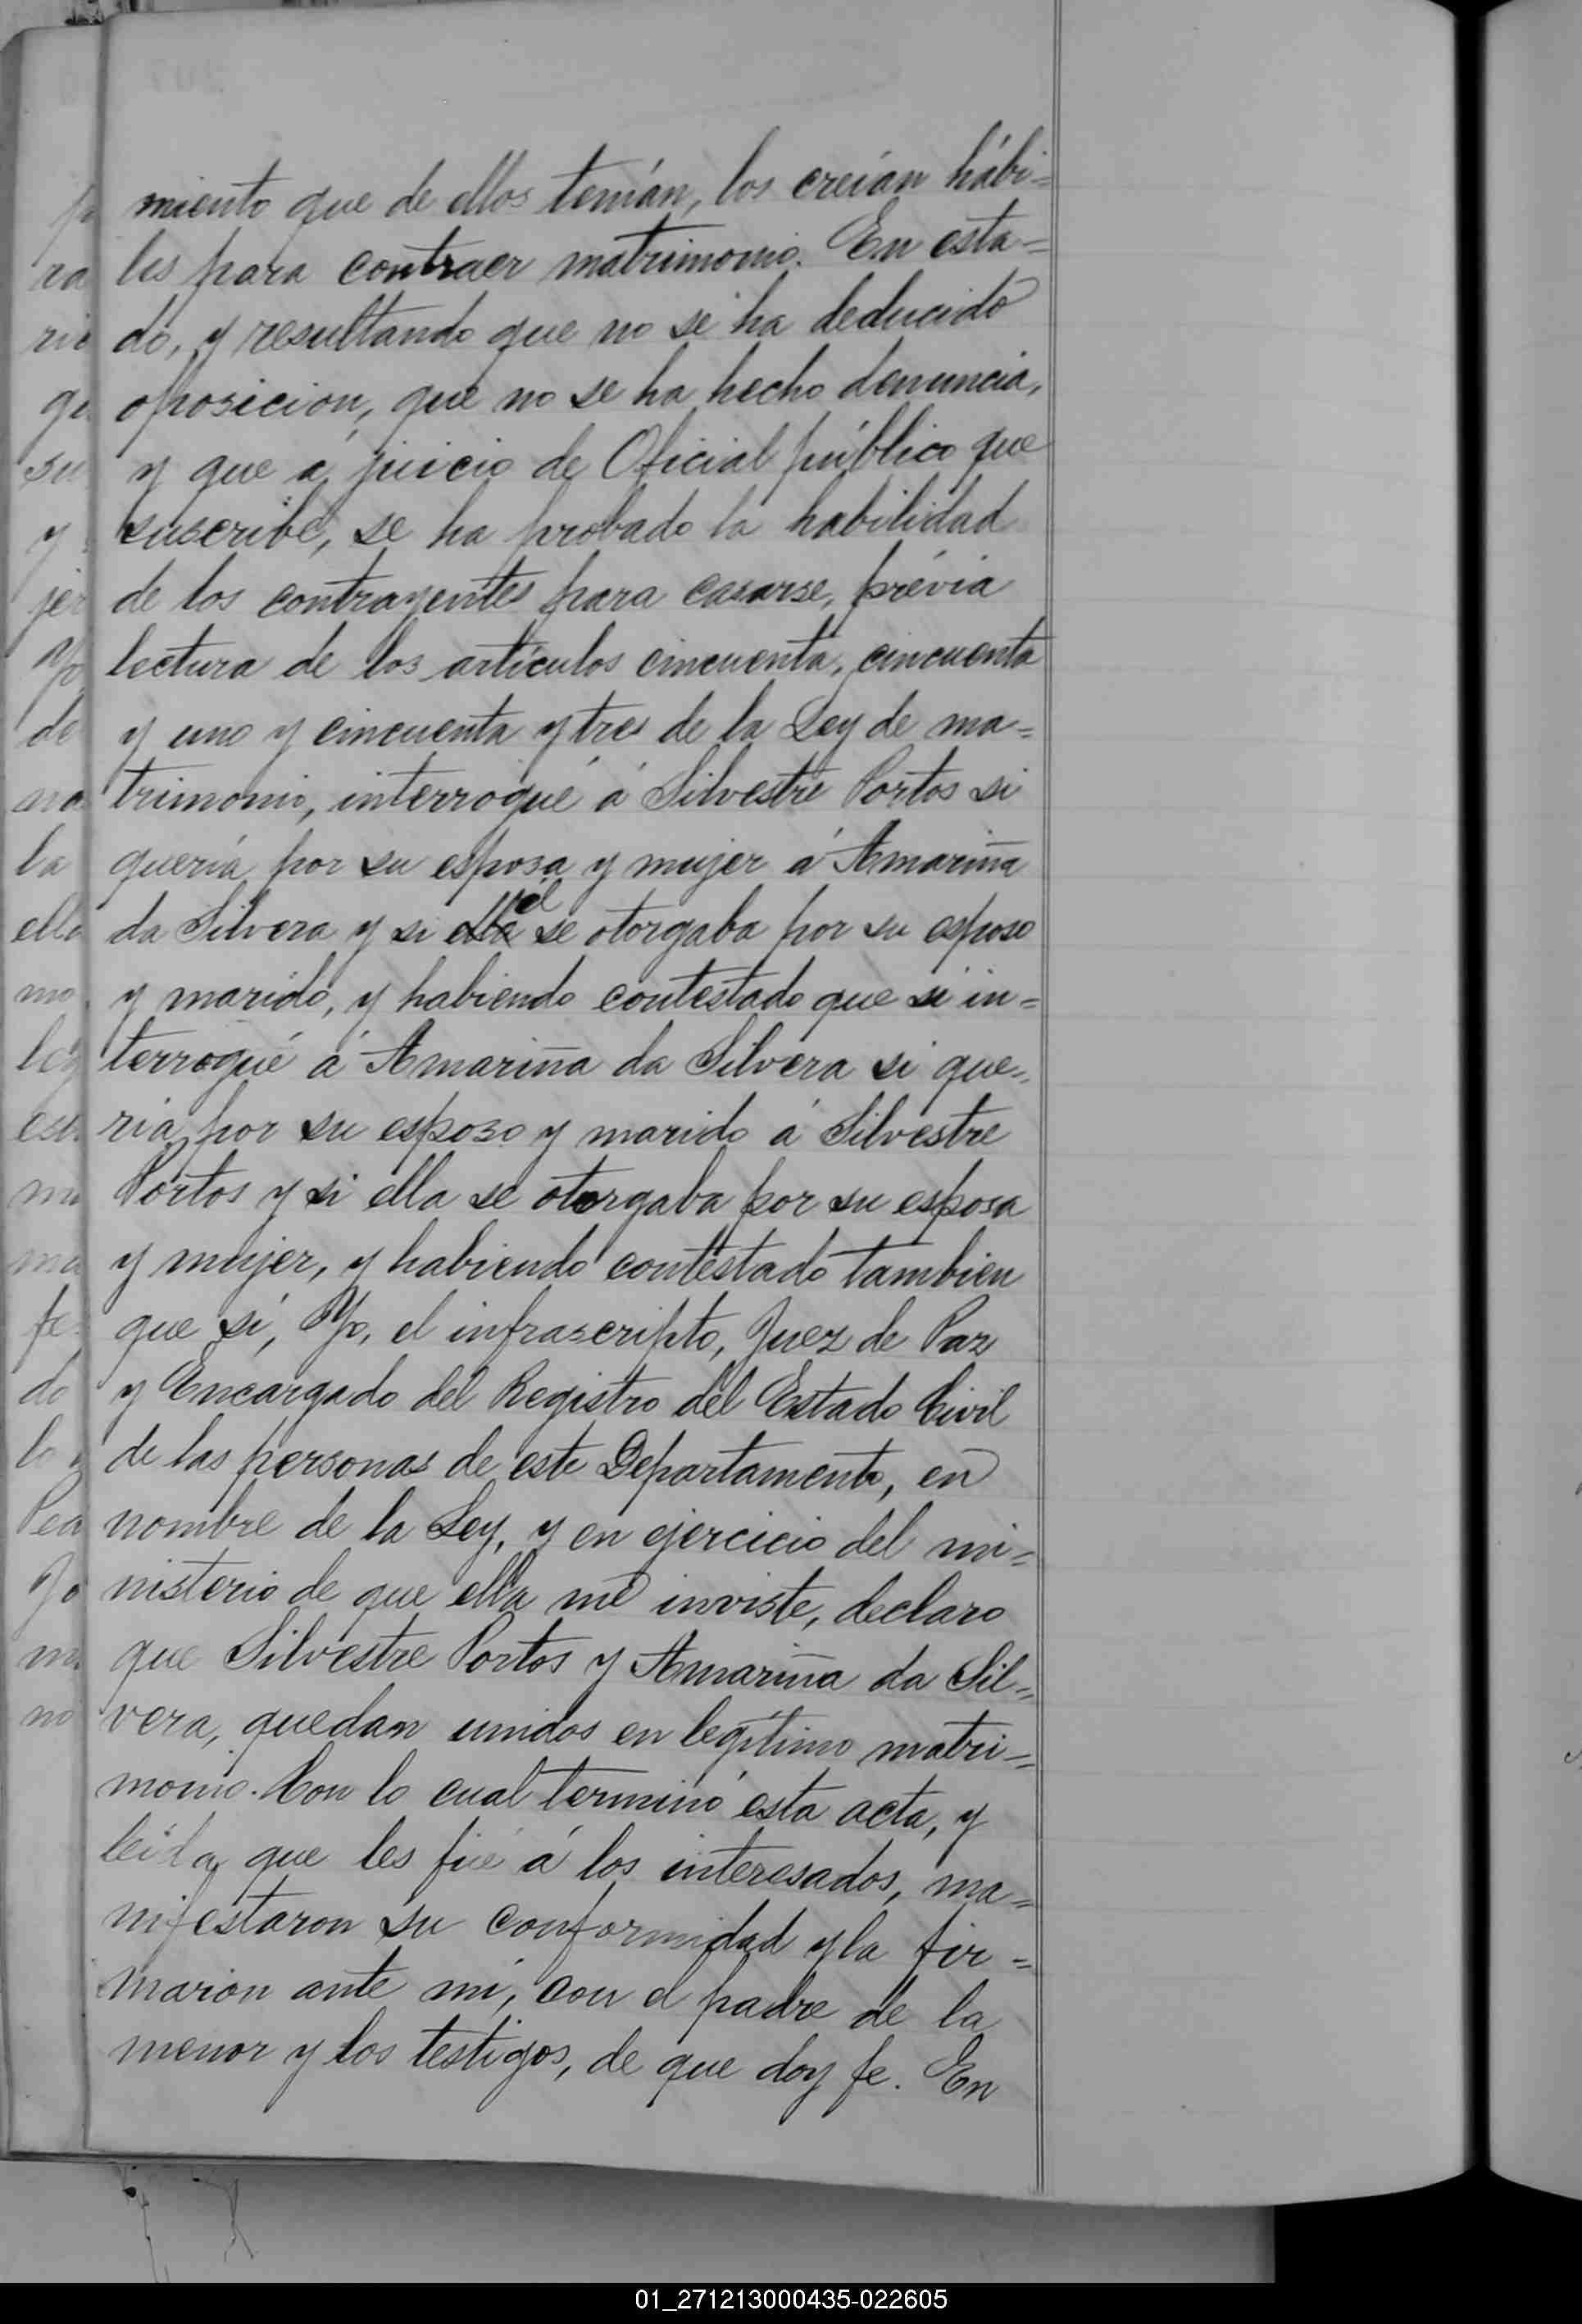 miento que de ellos tenían, los creían hábi=
les para contraer matrimonio. En esta=
do, y resultando que no se ha deducido
oposicion, que no se ha hecho denuncia,
y que á juicio de Oficial público que
suscribe, se ha probado la habilidad
de los contrayentes para casarse, prévia
lectura de los artículos cincuenta, cincuenta
y uno y cincuenta y tres de la Ley de ma=
trimonio, interrogué á Silvestre Portos si
quería por su esposa y mujer á Amariña
da Silvera y si ella él se otorgaba por su esposo
y marido, y habiendo contestado que si in=
terrogué á Amariña da Silvera si que=
ría por su esposo y marido á Silvestre
Portos y si ella se otorgaba por su esposa
y mujer, y habiendo contestado tambien
que sí, Yo, el infrascripto, Juez de Paz
y Encargado del Registro del Estado Civil
de las personas de este Departamento, en
nombre de la Ley, y en ejercicio del mi=
nisterio de que ella me inviste, declaro
que Silvestre Portos y Amariña da Sil=
vera, quedan unidos en legítimo matri=
monio. Con lo cual terminó esta acta, y
leida que les fué á los interesados, ma=
nifestaron su conformidad y la fir=
maron ante mí, con el padre de la
menor y los testigos, de que doy fe. En
01_271213000435-022605